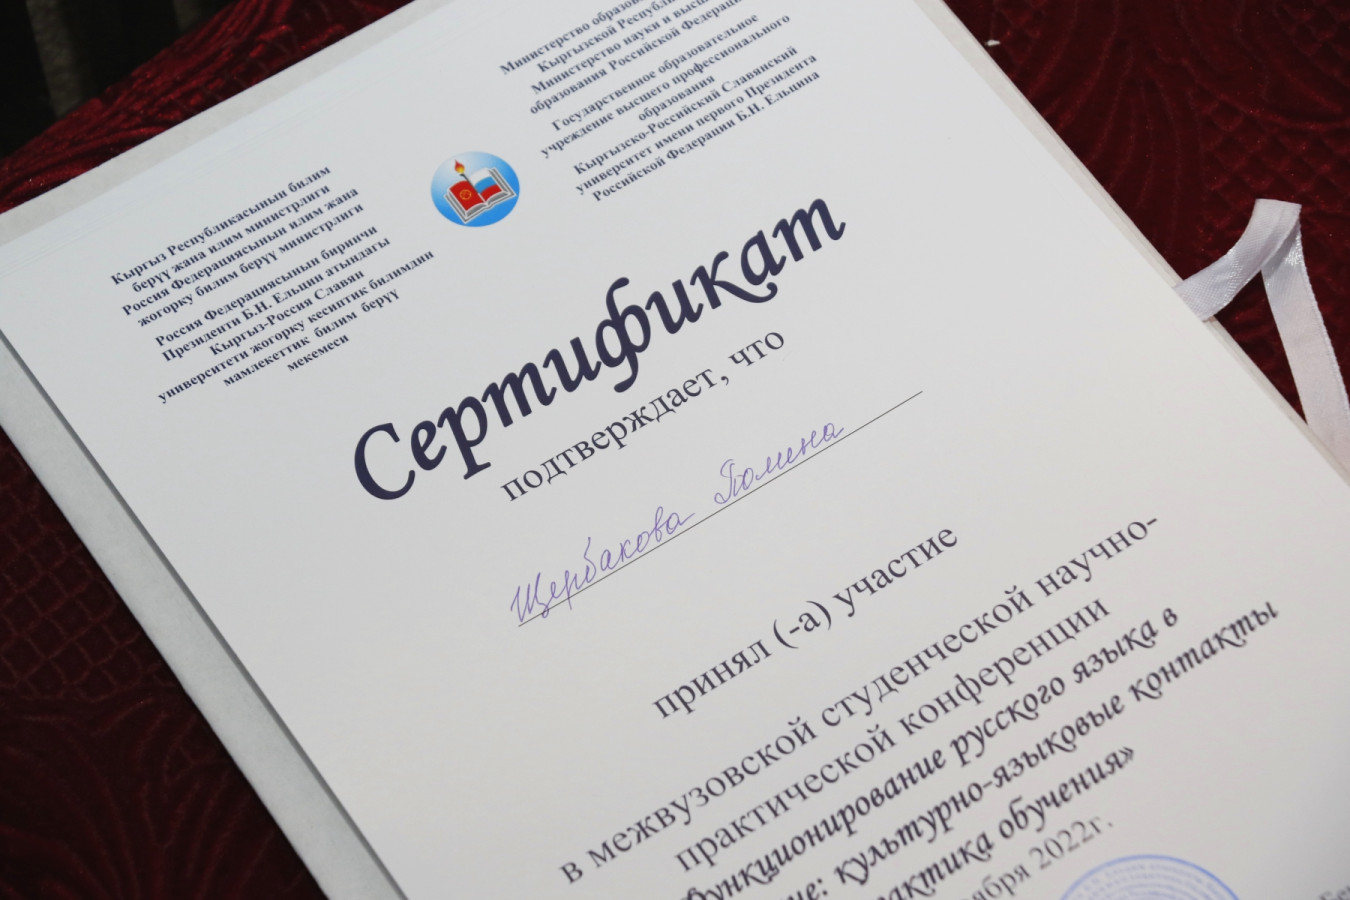 Кыргыз Республикасынын билим
берүү жана илим министрлиги
Россия Федерациясынын илим жана
жогорку билим берүү министрлиги
Россия Федерациясынын биринчи
Президенти Б.Н. Ельцин атындагы
Кыргыз-Россия Славян
университети жогорку кесиптик билимдин
мамлекеттик билим берүү
мекемеси
Министерство образования
Кыргызской Республики
Министерство науки и высшего
образования Российской Федерации
Государственное образовательное
учреждение высшего профессионального
образования
Кыргызско-Российский Славянский
университет имени первого Президента
Российской Федерации Б.Н. Ельцина
Сертификат
подтверждает, что
Щербакова Помина
принял (-а) участие
в межвузовской студенческой научно-
практической конференции
функционирование русского языка в
культурно-языковые контакты
обучения»
2022г.